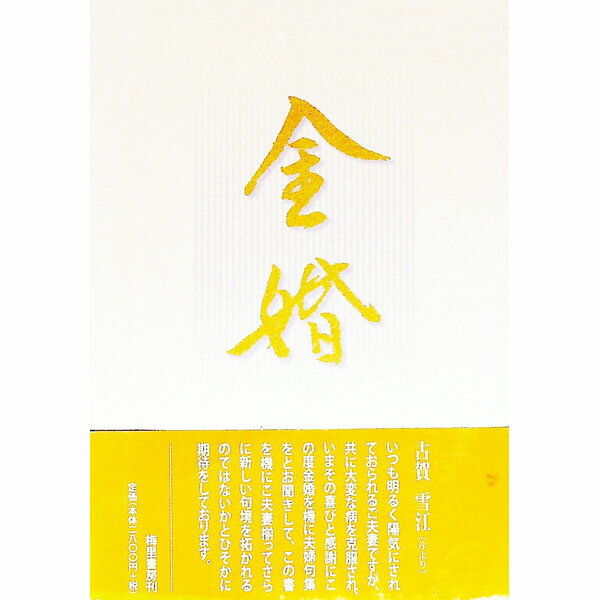 金婚
古賀 雪江(序より)
いつも明るく陽気にされ
ておられるご夫妻ですが、
共に大変な病を克服され、
いまその喜びと感謝にこ
の度金婚を機に夫婦句集
をとお聞きして、この書
を機にご夫妻揃ってさら
に新しい句境を拓かれる
のではないかとひそかに
期待をしております。
梅里書房刊
定価・本体二八〇〇円+税